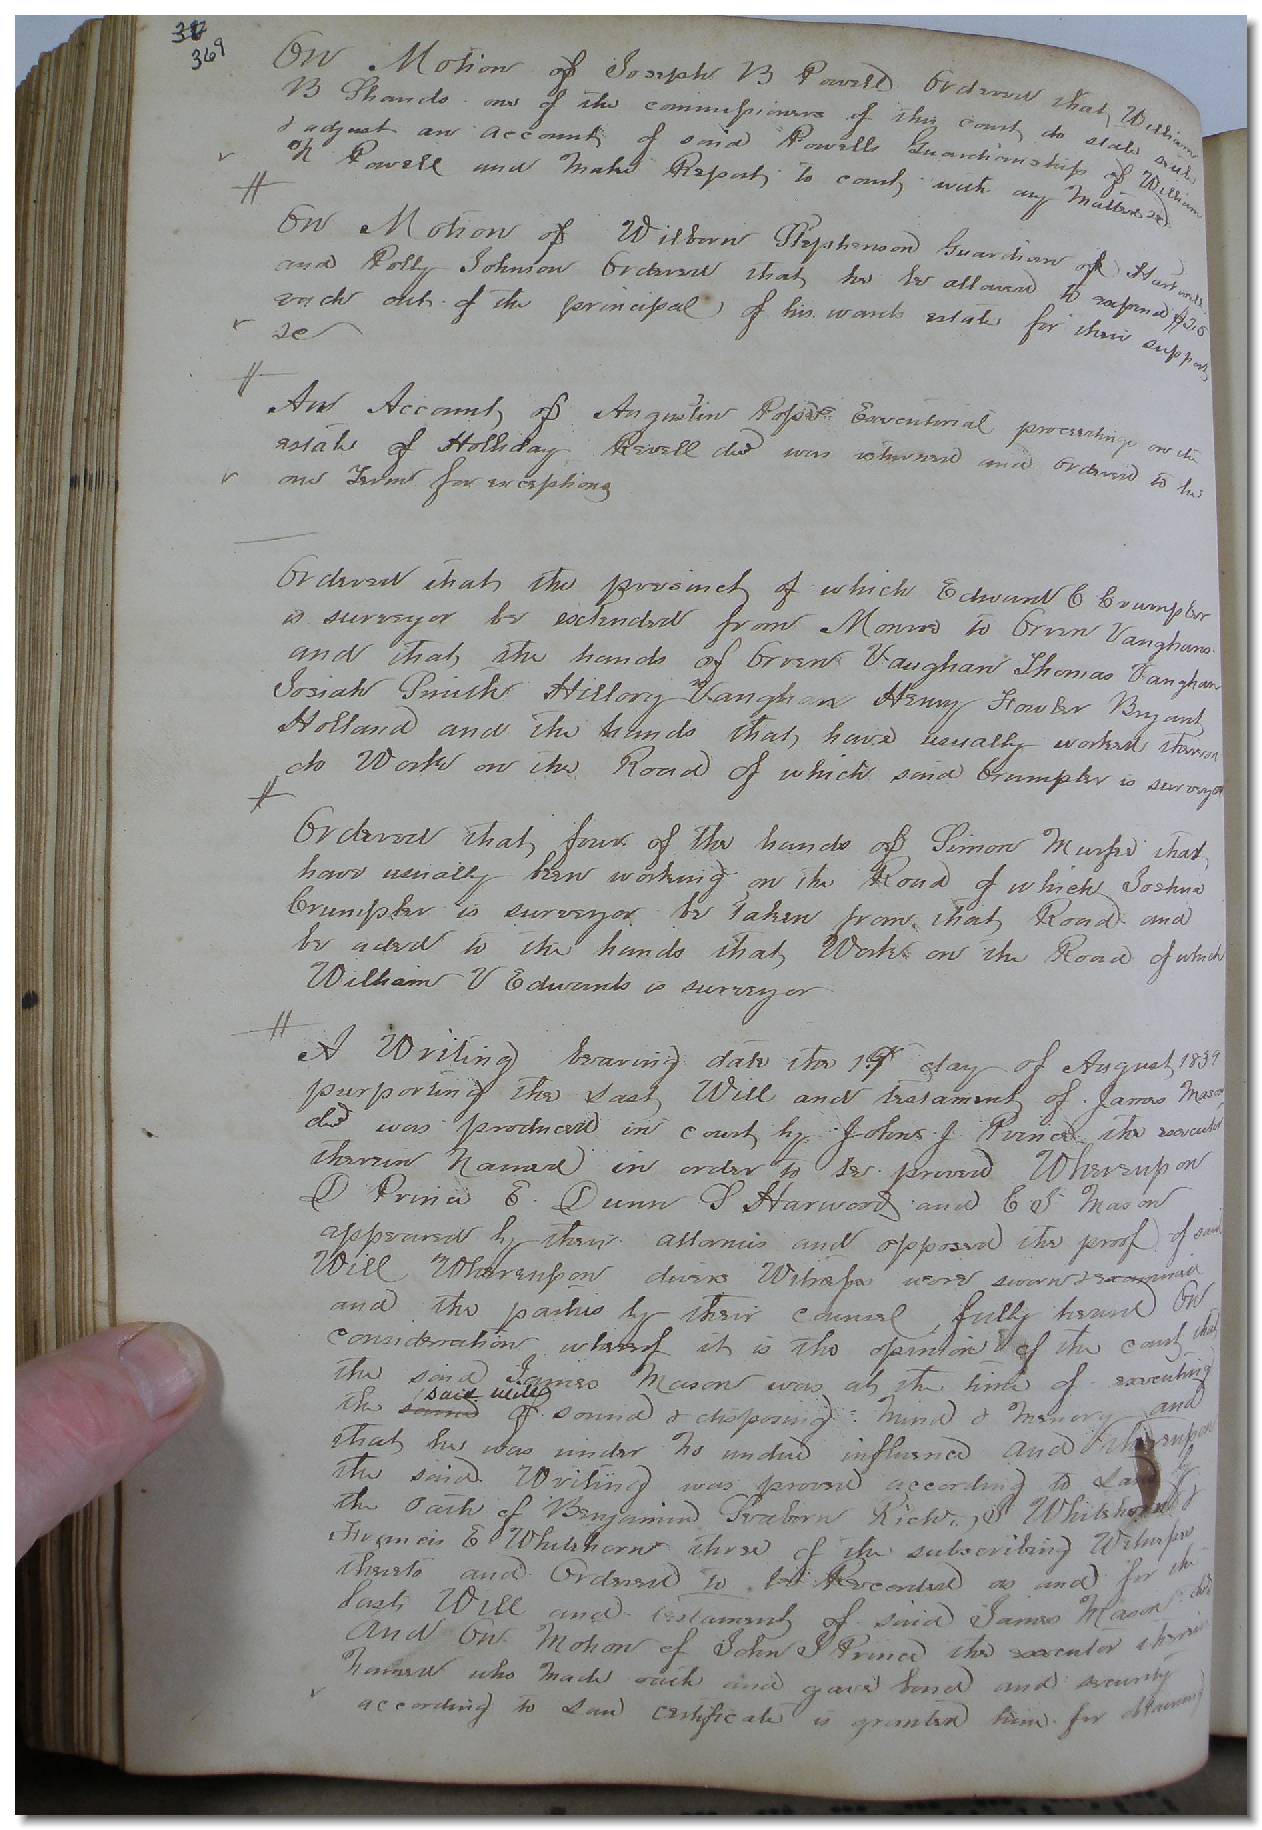 369
On Motion of Joseph B Powell Ordered that William
B Shands one of the commissioners of this court do state settle
& adjust an account of said Powells Guardianship of William
N Powell and Make Report to court with any Matters &c
On Motion of Wilborn Stephenson Guardian of
and Polly Johnson Ordered that he be allowed to expend $
each out of the principal of his wards estate for their support
&c
An Account of Augustin Executorial proceedings on the
estate of Holliday Revell decd was returned and Ordered to lie
one Term for exceptions
Ordered that the precinct of which Edward C Crumpler
is surveyor be extended from Monroe to Green Vaughans
and that the hands of Green Vaughan Thomas Vaughan
Josiah Smith Hillory Vaughan Henry Fowler Bryant
Holland and the hands that have usually worked thereon
do Work on the Road of which said Crumpler is surveyor
Ordered that four of the hands of Simon Murfe that
have usually been working on the Road of which Joshua
Crumpler is surveyor be taken from that Road and
be aded to the hands that Work on the Road of which
William V Edwards is surveyor
A Writing bearing date the day of August 1839
purporting the Last Will and testament of James Mason
decd was produced in court by John J Prince the executor
therein Named in order to be proved Whereupon
D Prince E. Dunn S Harwood and C S Mason
appeared by their attornies and opposed the proof of said
Will Whereupon divers Witnesses were sworn & examined
and the parties by their counsel fully heard On
consideration whereof it is the opinion of the court that
the said James Mason was at the time of executing
said will
the same of sound & disposing Mind & Memory and
that he was under no undue influence and Whereupon
the said Writing was proved according to Law by
the oath of Benjamin Seaborn Richd S Whitehorn &
Francis E Whitehorn three of the subscribing Witnesses
thereto and Ordered to be Recorded as and for the
Last Will and testament of said James Mason decd
And On Motion of John J Prince the executor therein
Named who Made oath and gave bond and security
according to Law certificate is granted him for obtaining